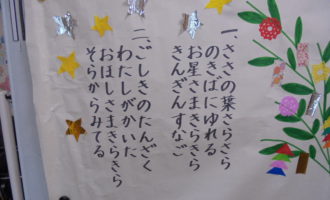 一、ささの葉さらさら
のきばにゆれる
お星さまきらきら
きんぎんすなご
二、ごしきのたんざく
わたしがかいた
おほしさまきらきら
そらからみてる